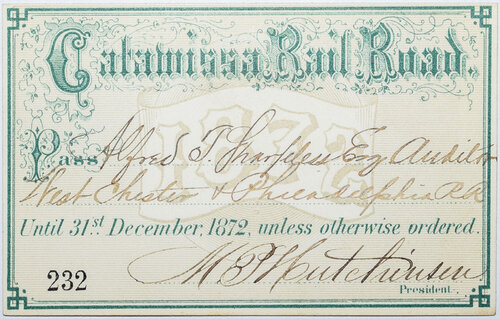 Catawissa Rail Road.
1872
Pass Alfred T. Sharpless Esq Auditor
West Chester & Philadelphia R R
Until 31st December, 1872, unless otherwise ordered.
232
M P Hutchinson
President.